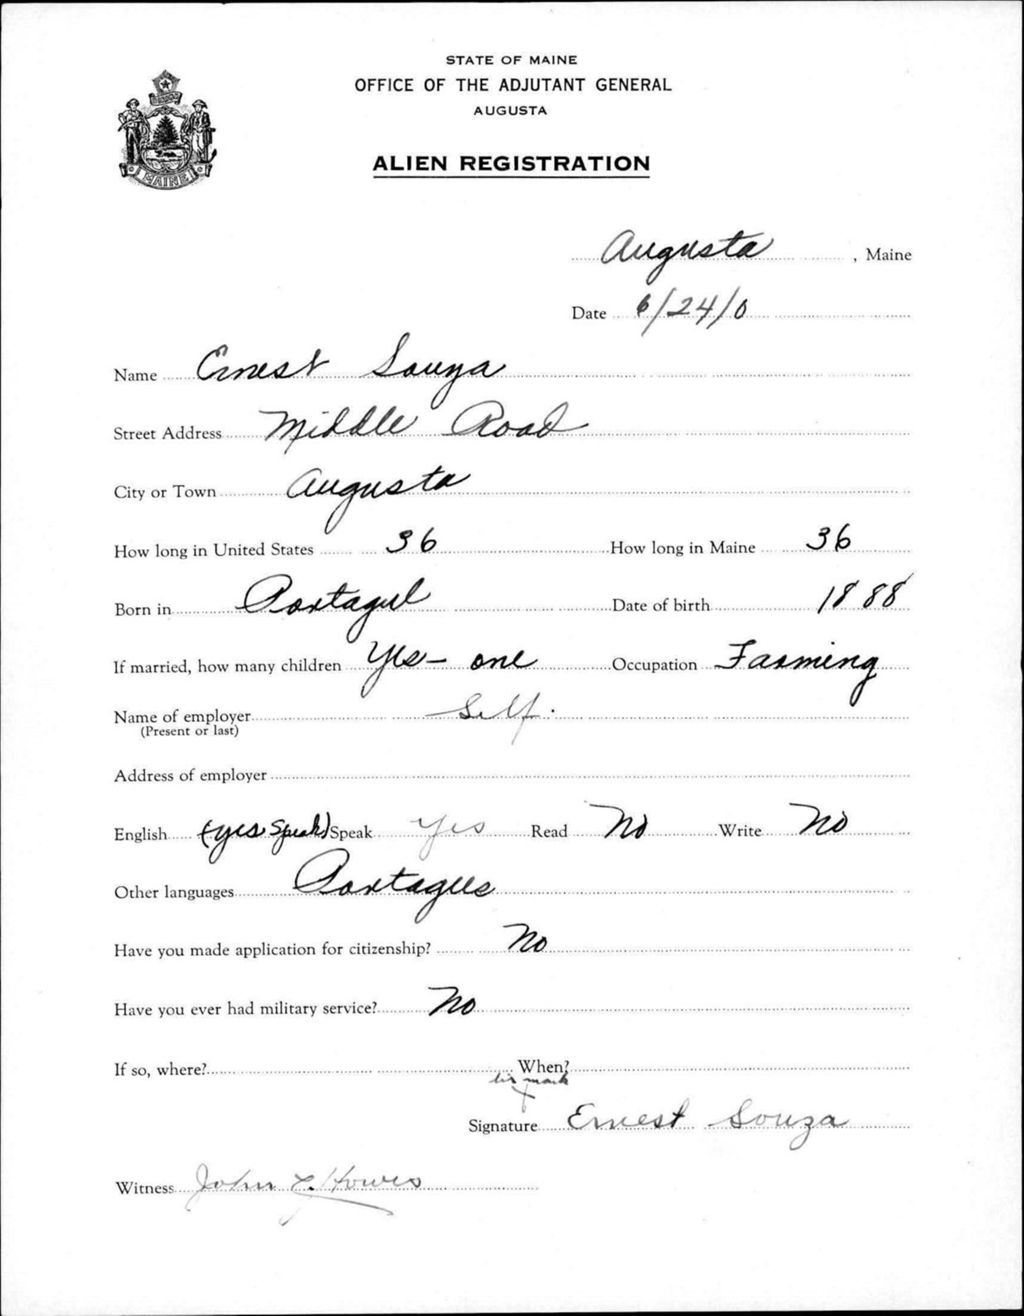 STATE OF MAINE
OFFICE OF THE ADJUTANT GENERAL
AUGUSTA
MAINE
ALIEN REGISTRATION
Augusta, Maine
Date 6/24/0
Name Ernest Souza
Street Address Middle Road
City or Town Augusta
How long in United States 36 How long in Maine 36
Born in Portagul Date of birth 1888
If married, how many children Yes - one Occupation Farming
Name of employer Self.
(Present or last)
Address of employer
English (yes Speak) Speak Yes Read No Write No
Other languages Portagues
Have you made application for citizenship? No
Have you ever had military service? No
If so, where? When?
his mark
x
Signature Ernest Souza
Witness John E. Howes